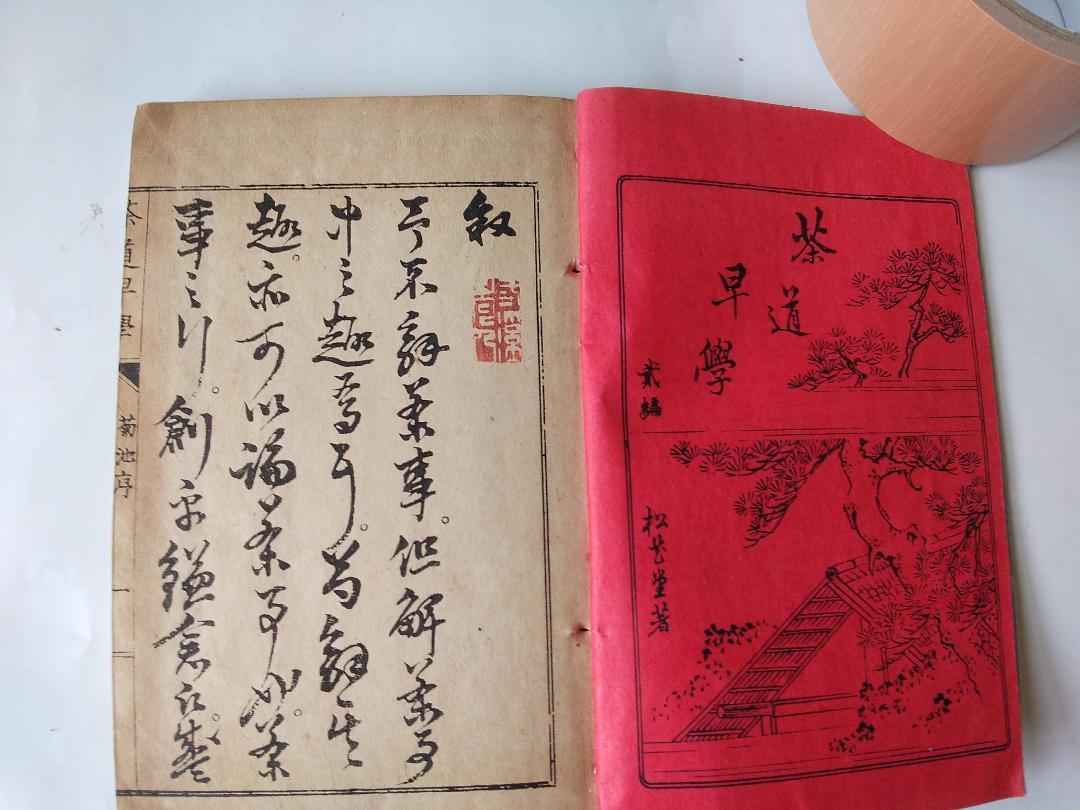 茶道
早學
貳編
松堂著
叙
予不解茶事。但解茶事
中之趣焉耳。苟解其
趣。亦可以論茶事也。茶
事之行。創乎鎌倉氏。盛
茶道早學 菊池序 一